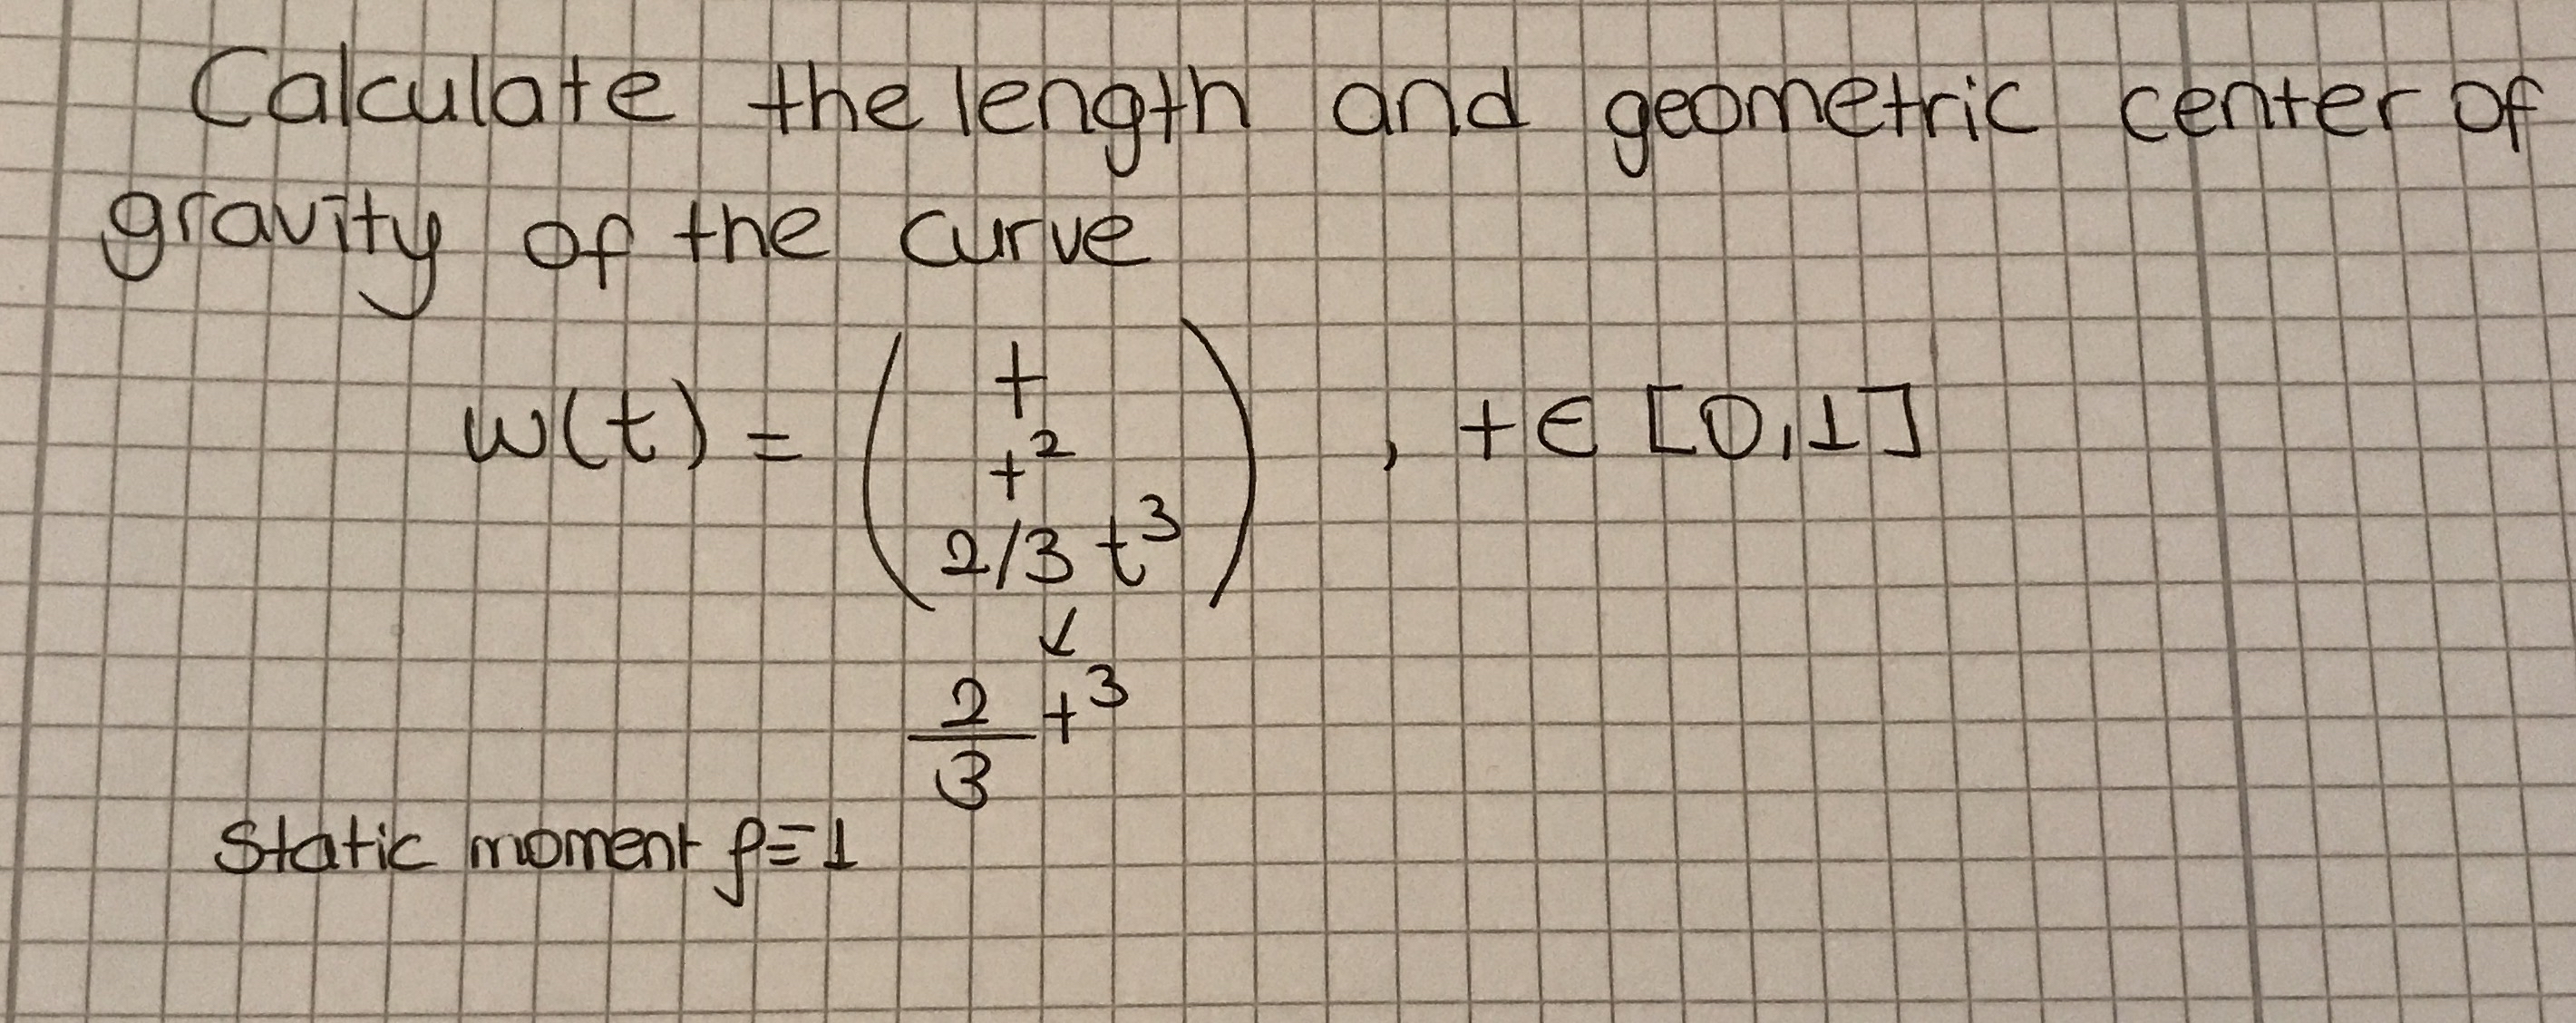 Calculate the length and geometric center of
gravity of the curve
w(t) = ( t
t²
2/3 t³ ) , t ∈ [0,1]
↙
2/3 t³
Static moment ρ≡1